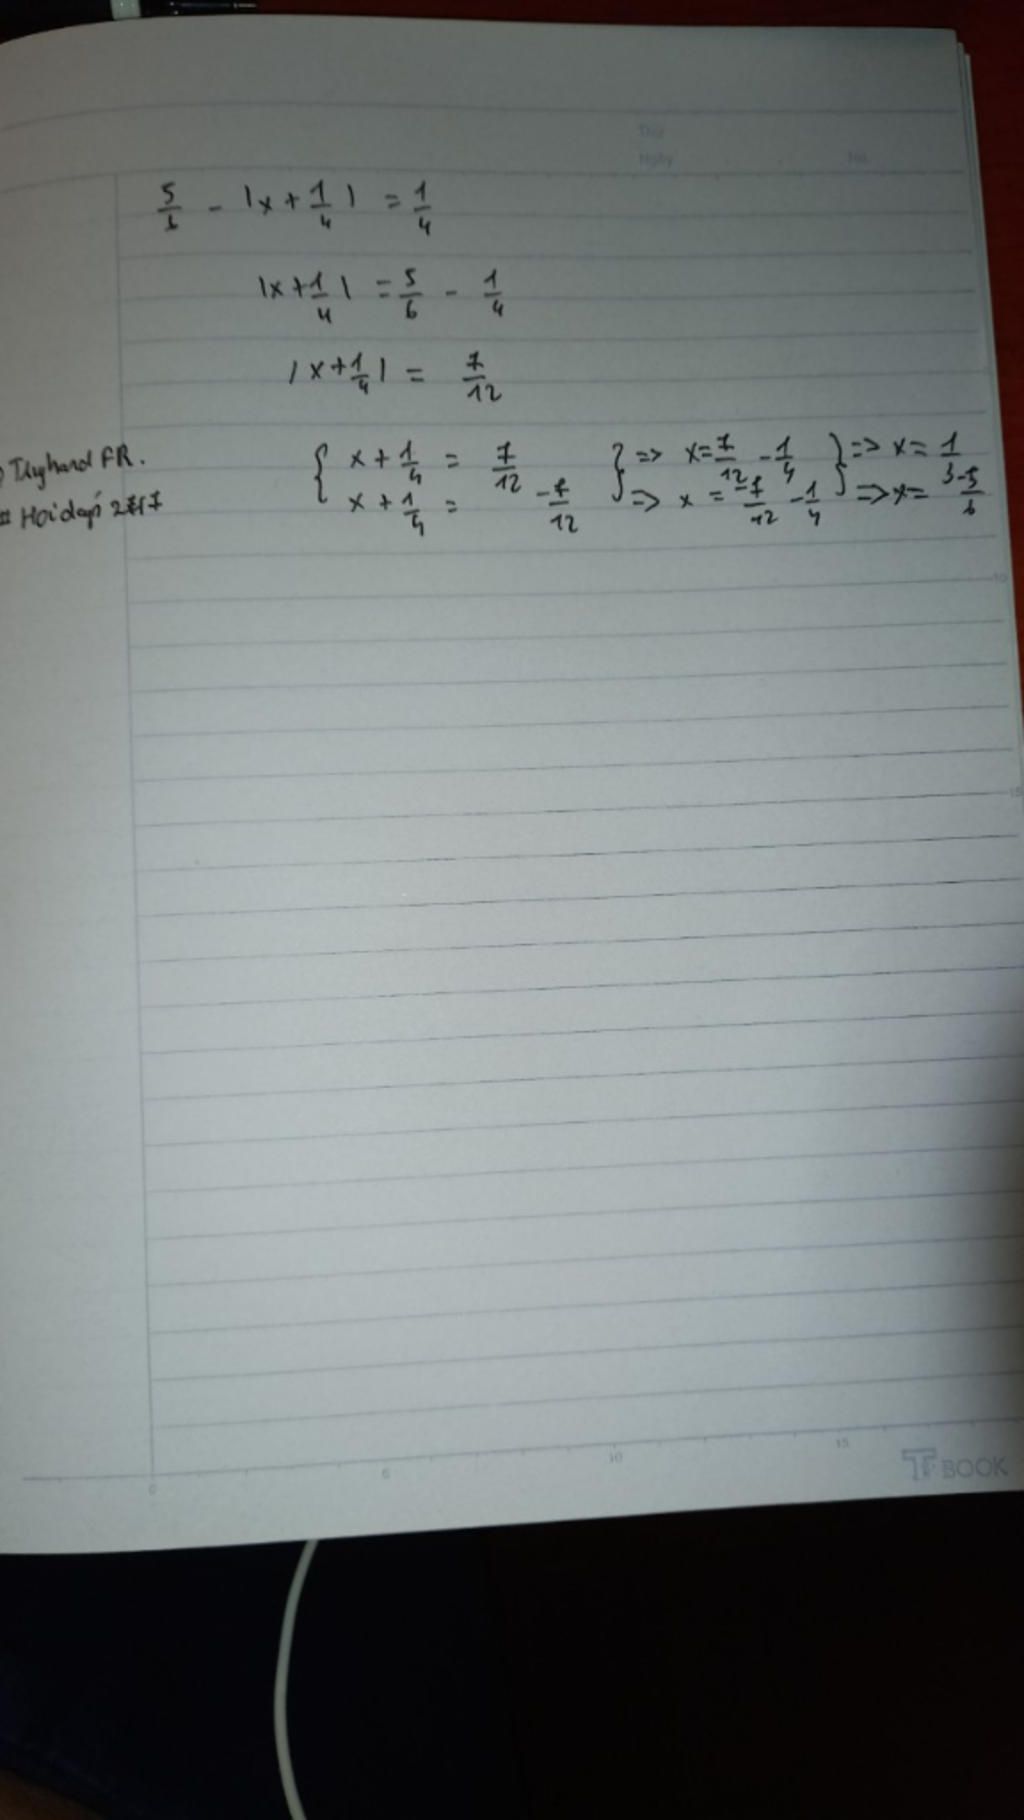 Thứ
Ngày No.
5/6 - |x + 1/4| = 1/4
|x + 1/4| = 5/6 - 1/4
|x + 1/4| = 7/12
Tryhard FR.
# Hoidap 247
{ x + 1/4 = 7/12 } => x = 7/12 - 1/4 } => x = 1/3
x + 1/4 = -7/12 => x = -7/12 - 1/4 => x = -5/6
10
15
0 5 10 15
TF BOOK